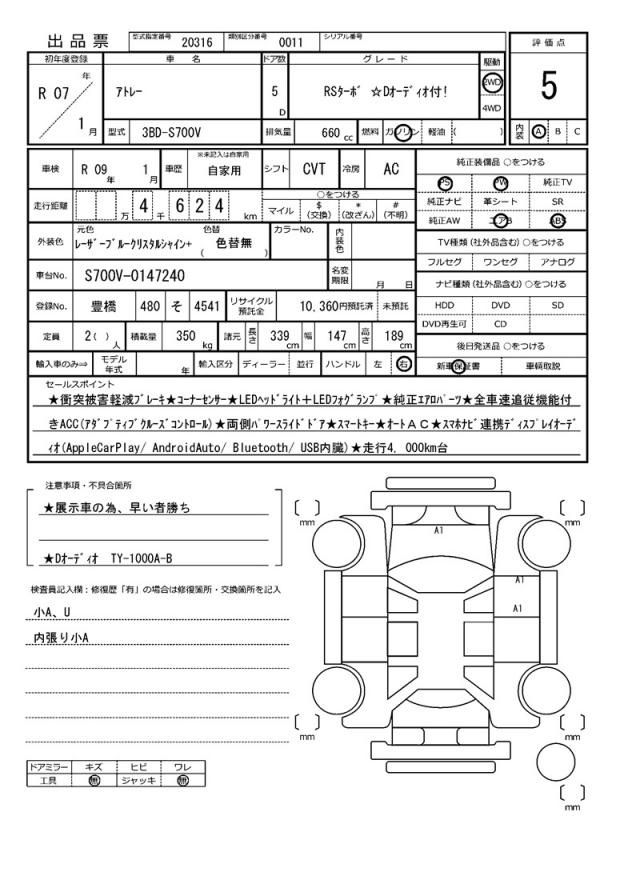 出品票
型式指定番号 20316 類別区分番号 0011 シリアル番号
初年度登録 車名 ドア数 グレード 駆動 評価点
R 07 年 1 月
アトレー
5 D
RSターボ ☆Dオーディオ付!
2WD
4WD
5
型式 3BD-S700V 排気量 660 cc 燃料 ガソリン 軽油 ( )
内装 A B C
車検 R 09 年 1 月 車歴 ※未記入は自家用 自家用 シフト CVT 冷房 AC
走行距離 万 4 千 6 2 4 km
○をつける
マイル $(交換) *(改ざん) #(不明)
外装色 元色 レーザーブルークリスタルシャイン+ 色替 ( 色替無 ) カラーNo. 内装色
車台No. S700V-0147240 名変期限 月 日
登録No. 豊橋 480 そ 4541 リサイクル預託金 10,360円預託済 未預託
定員 2( ) 人 積載量 350 kg 諸元 長さ 339 cm 幅 147 cm 高さ 189 cm
輸入車のみ⇒ モデル年式 年 輸入区分 ディーラー 並行 ハンドル 左 右
純正装備品 ○をつける
PS PW 純正TV
純正ナビ 革シート SR
純正AW エアB ABS
TV種類(社外品含む)○をつける
フルセグ ワンセグ アナログ
ナビ種類(社外品含む)○をつける
HDD DVD SD
DVD再生可 CD
後日発送品 ○をつける
新車保証書 車輌取説
セールスポイント
★衝突被害軽減ブレーキ★コーナーセンサー★LEDヘッドライト+LEDフォグランプ★純正エアロパーツ★全車速追従機能付
きACC(アダプティブクルーズコントロール)★両側パワースライドドア★スマートキー★オートAC★スマホナビ連携ディスプレイオーデ
ィオ(AppleCarPlay/ AndroidAuto/ Bluetooth/ USB内臓)★走行4, 000km台
注意事項・不具合箇所
★展示車の為、早い者勝ち
★Dオーディオ TY-1000A-B
検査員記入欄:修復歴「有」の場合は修復箇所・交換箇所を記入
小A、U
内張り小A
ドアミラー キズ ヒビ ワレ
工具 無 ジャッキ 無
[ ] mm
[ ] mm
A1
A1
A1
[ ] mm
[ ] mm
[ ] mm